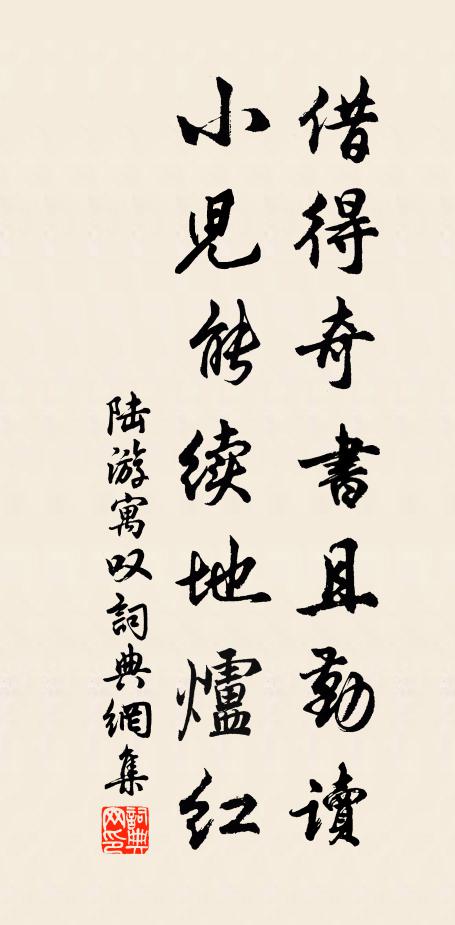 借得奇書且勤讀
小兒能續地爐紅
陆游寓叹詞典網集
詞典網印